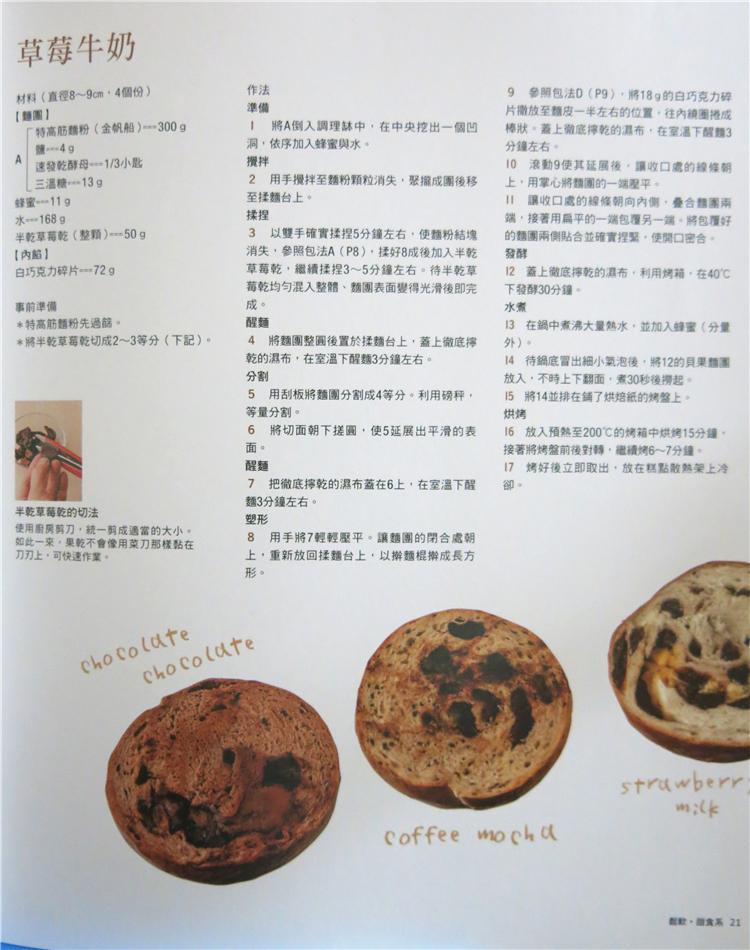 草莓牛奶
材料（直徑8～9cm，4個份）
【麵團】
特高筋麵粉（金帆船）---300 g
鹽---4 g
A
速發乾酵母---1/3小匙
三溫糖---13 g
蜂蜜---11 g
水---168 g
半乾草莓乾（整顆）---50 g
【內餡】
白巧克力碎片---72 g
事前準備
＊特高筋麵粉先過篩。
＊將半乾草莓乾切成2～3等分（下記）。
半乾草莓乾的切法
使用廚房剪刀，統一剪成適當的大小。
如此一來，果乾不會像用菜刀那樣黏在
刀刃上，可快速作業。
作法
準備
1 將A倒入調理缽中，在中央挖出一個凹
洞，依序加入蜂蜜與水。
攪拌
2 用手攪拌至麵粉顆粒消失，聚攏成團後移
至揉麵台上。
揉捏
3 以雙手確實揉捏5分鐘左右，使麵粉結塊
消失，參照包法A（P8），揉好8成後加入半乾
草莓乾，繼續揉捏3～5分鐘左右。待半乾草
莓乾均勻混入整體、麵團表面變得光滑後即完
成。
醒麵
4 將麵團整圓後置於揉麵台上，蓋上徹底擰
乾的濕布，在室溫下醒麵3分鐘左右。
分割
5 用刮板將麵團分割成4等分。利用磅秤，
等量分割。
6 將切面朝下搓圓，使5延展出平滑的表
面。
醒麵
7 把徹底擰乾的濕布蓋在6上，在室溫下醒
麵3分鐘左右。
塑形
8 用手將7輕輕壓平。讓麵團的閉合處朝
上，重新放回揉麵台上，以擀麵棍擀成長方
形。
9 參照包法D（P9），將18 g的白巧克力碎
片撒放至麵皮一半左右的位置，往內繞圈捲成
棒狀。蓋上徹底擰乾的濕布，在室溫下醒麵3
分鐘左右。
10 滾動9使其延展後，讓收口處的線條朝
上，用掌心將麵團的一端壓平。
11 讓收口處的線條朝向內側，疊合麵團兩
端，接著用扁平的一端包覆另一端。將包覆好
的麵團兩側貼合並確實捏緊，使開口密合。
發酵
12 蓋上徹底擰乾的濕布，利用烤箱，在40℃
下發酵30分鐘。
水煮
13 在鍋中煮沸大量熱水，並加入蜂蜜（分量
外）。
14 待鍋底冒出細小氣泡後，將12的貝果麵團
放入，不時上下翻面，煮30秒後撈起。
15 將14並排在鋪了烘焙紙的烤盤上。
烘烤
16 放入預熱至200℃的烤箱中烘烤15分鐘，
接著將烤盤前後對轉，繼續烤6～7分鐘。
17 烤好後立即取出，放在糕點散熱架上冷
卻。
chocolate
chocolate
coffee mocha
strawberry
milk
鬆軟・甜食系 21